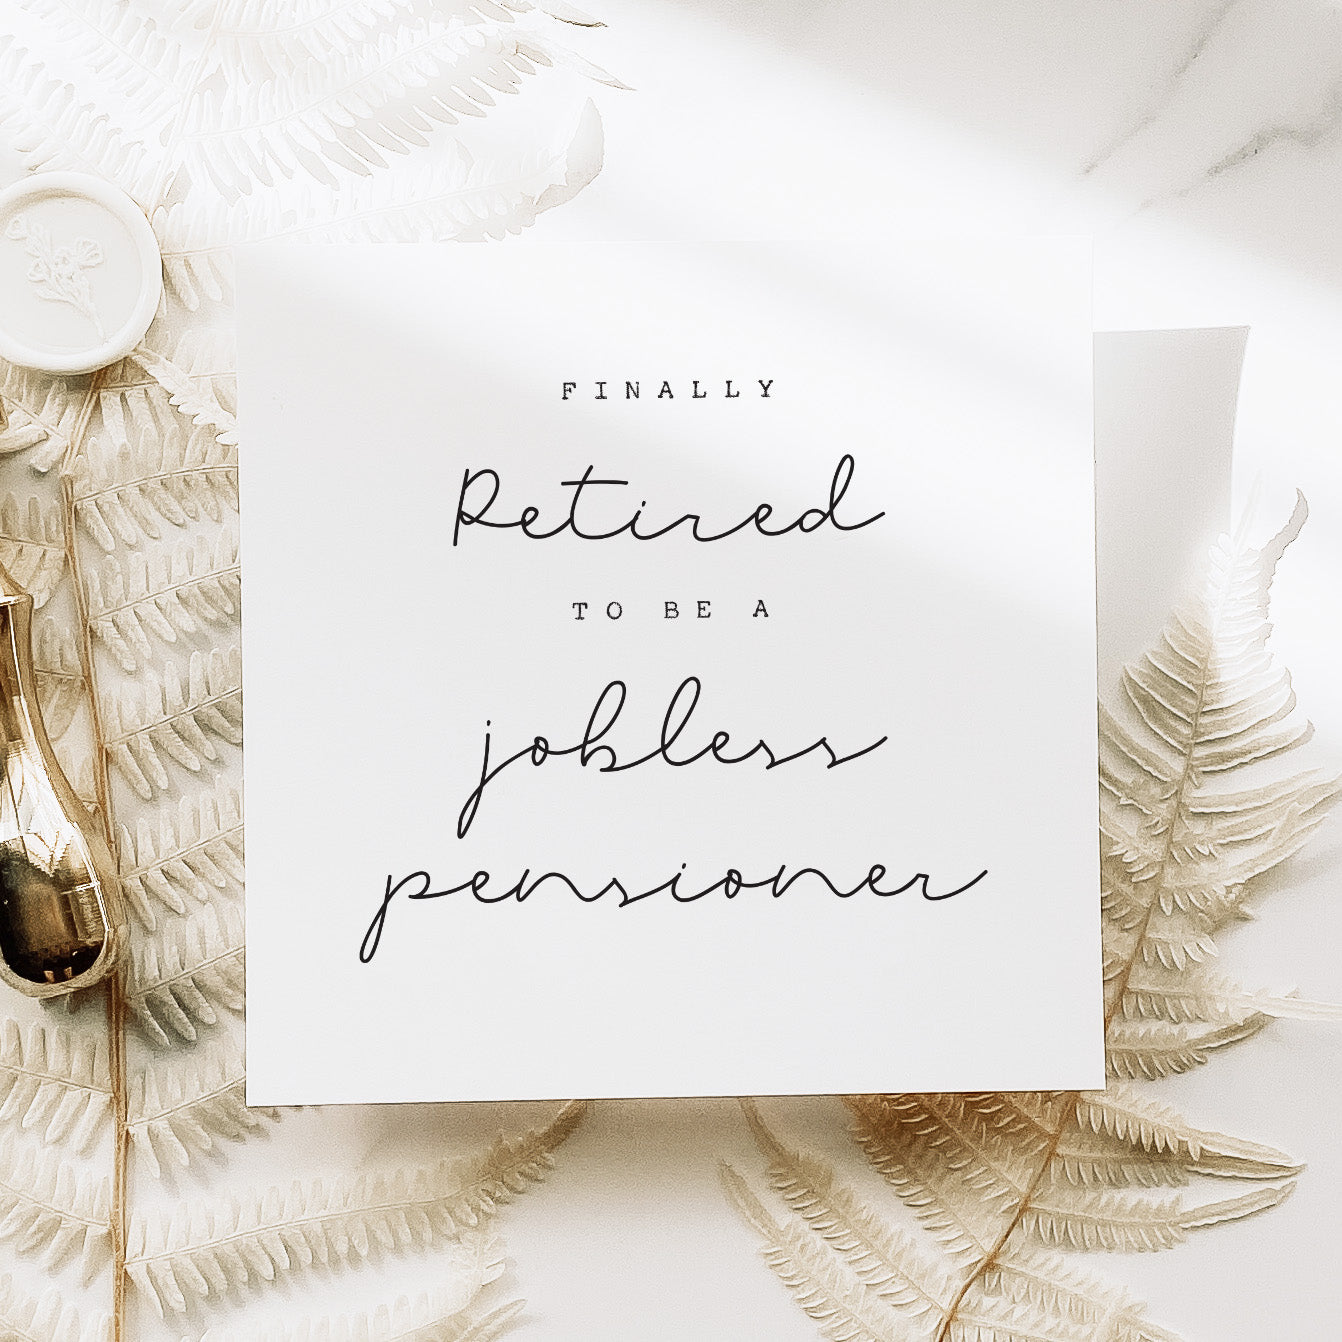 FINALLY
Retired
TO BE A
jobless
pensioner